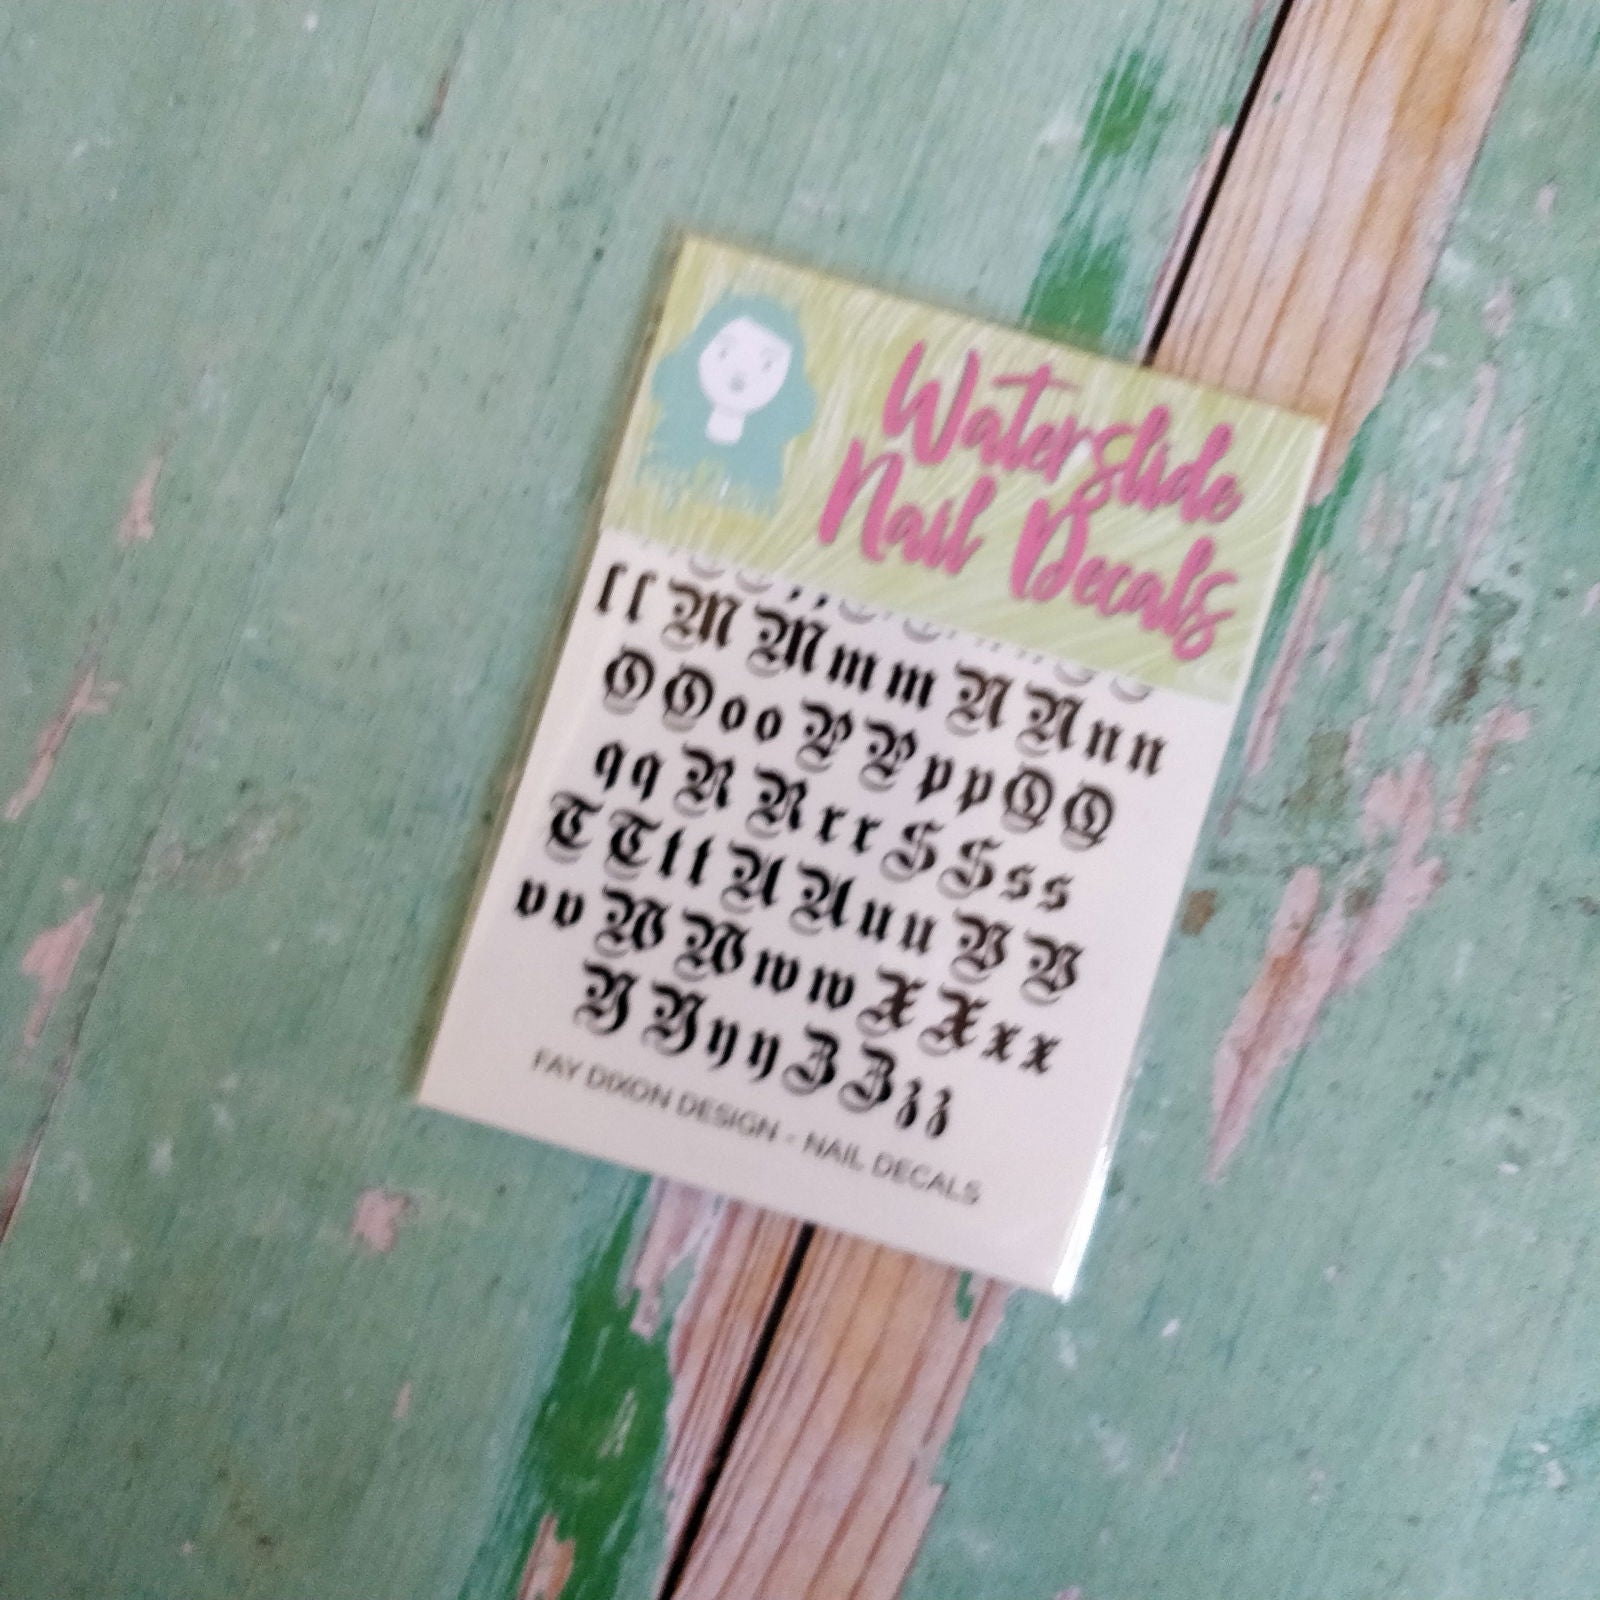 Waterslide
Nail Decals
l l M M m m N N n n
O O o o P P p p Q Q
q q R R r r S S s s
T T t t U U u u V V
v v W W w w X X x x
Y Y y y Z Z z z
FAY DIXON DESIGN - NAIL DECALS